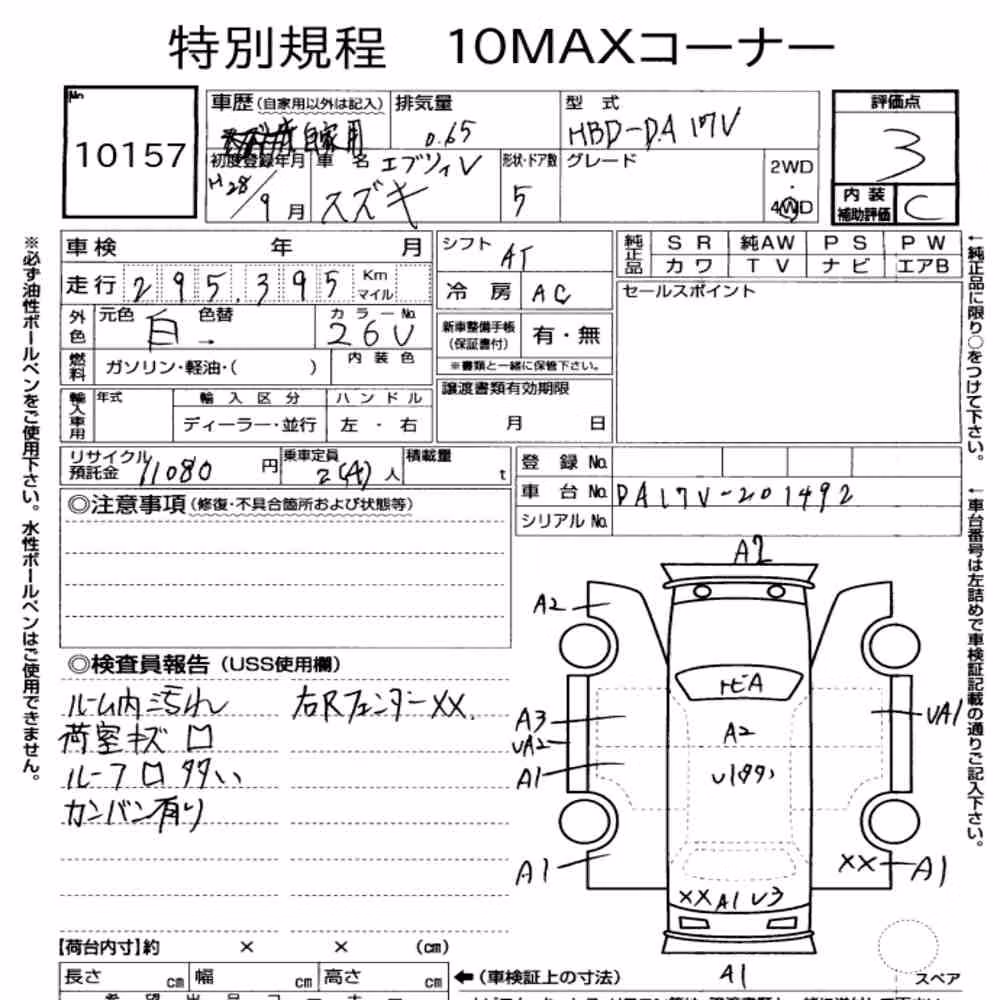 特別規程 10MAXコーナー
No.
10157
車歴(自家用以外は記入)
自家用
排気量
0.65
型式
HBD-DA17V
評価点
3
初度登録年月
H28/9月
車名 エブリィV
スズキ
形状・ドア数
5
グレード
2WD
・
4WD
内装
補助評価
C
車検 年 月
走行 295,395 Km
マイル
シフト
AT
冷房 AC
純正品
SR 純AW PS PW
カワ TV ナビ エアB
セールスポイント
外色
元色 白 色替 →
カラーNo.
26U
新車整備手帳
(保証書付)
有・無
※書類と一緒に保管下さい。
燃料
ガソリン・軽油・( )
内装色
譲渡書類有効期限
月 日
輸入車用
年式
輸入区分
ディーラー・並行
ハンドル
左・右
リサイクル
預託金 11080 円
乗車定員
2(4)人
積載量
t
登録No.
車台No. DA17V-201492
シリアルNo.
◎注意事項(修復・不具合箇所および状態等)
◎検査員報告(USS使用欄)
ルーム内ニ汚れ
荷室キズ ロ
ルーフロ多い
カンバン有り
右Rフェンダー XX.
A2
A2
トビA
A3
UA2
A1
A2
UA1
A1
XX A1 U3
XX
A1
A1
スペア
【荷台内寸】約 × × (cm)
長さ cm 幅 cm 高さ cm
←(車検証上の寸法)
※必ず油性ボールペンをご使用下さい。水性ボールペンはご使用できません。
←純正品に限り○をつけて下さい。
←車台番号は左詰めで車検証記載の通りご記入下さい。